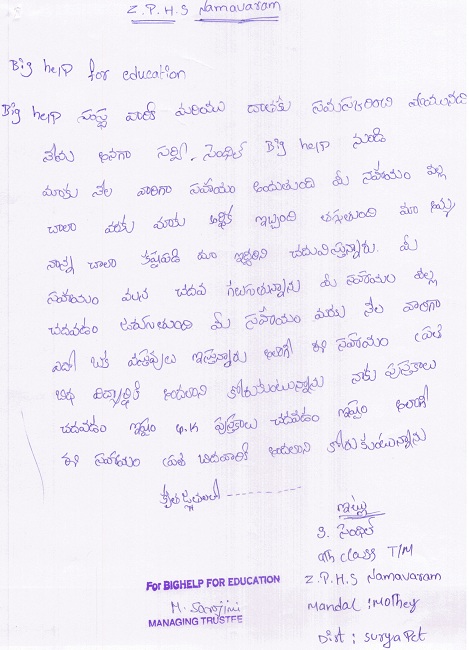 Z.P.H.S Namavaram
Big help for education
Big help సంస్థ వారికి మరియు దాతకు నమస్కరించి వ్రాయునది
నేను అనగా సర్వి. సెంథిల్ Big help నుండి
మాకు నెల వారిగా సహాయం అందుతుంది మీ సహాయం వల్ల
చాలా వరకు మాకు ఆర్థిక ఇబ్బంది తగ్గుతుంది మా అమ్మ
నాన్న చాలా కష్టపడి మా ఇద్దరిని చదువిస్తున్నారు. మీ
సహాయం వలన చదవ గలుగుతున్నాను మీ సహాయం వల్ల
చదవడం జరుగుతుంది మీ సహాయం మాకు నెల వారిగా
ఏదో ఒక వస్తువులు ఇస్తున్నారు ఇలాగే ఈ సహాయం ప్రతి
విద్యార్థికి అందాలని కోరుకుంటున్నాను నాకు పుస్తకాలు
చదవడం ఇష్టం G.K పుస్తకాలు చదవడం ఇష్టం ఇలాగే
ఈ సహాయం ప్రతి పేదవారికి అందాలని కోరుకుంటున్నాను
కృతజ్ఞతలతో ------------
ఇట్లు
సెంథిల్
class T/M
Z.P.H.S Namavaram
Mandal : Mothey
Dist : Suryapet
For BIGHELP FOR EDUCATION
M. Sarojini
MANAGING TRUSTEE